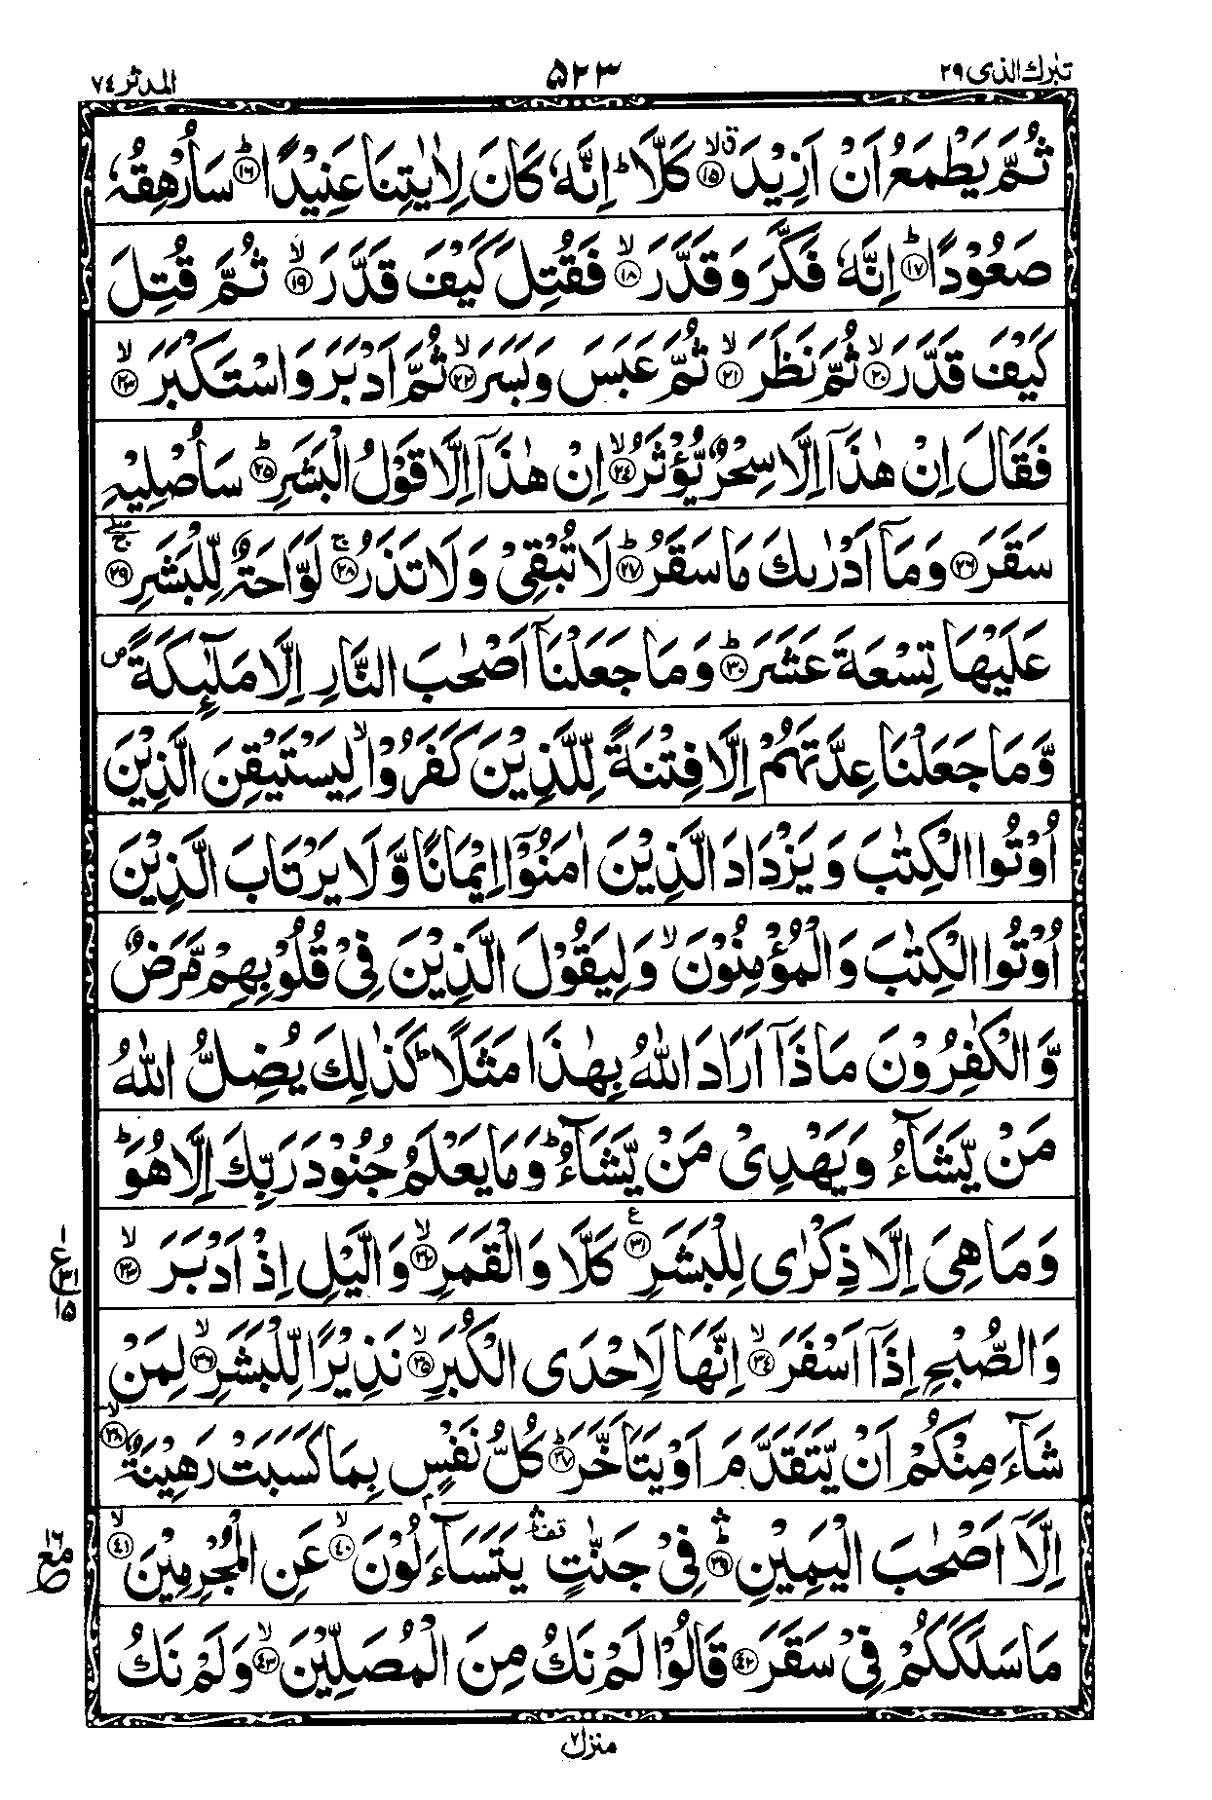 تبٰرك الذى ٢٩
۵۲۳
المدثر ٧٤
ثُمَّ يَطْمَعُ اَنْ اَزِيْدَ ۙق ﴿۱۵﴾ كَلَّا ؕ اِنَّهٗ كَانَ لِاٰيٰتِنَا عَنِيْدًا ؕ ﴿۱۶﴾ سَاُرْهِقُهٗ
صَعُوْدًا ؕ ﴿۱۷﴾ اِنَّهٗ فَكَّرَ وَ قَدَّرَ ۙ ﴿۱۸﴾ فَقُتِلَ كَيْفَ قَدَّرَ ۙ ﴿۱۹﴾ ثُمَّ قُتِلَ
كَيْفَ قَدَّرَ ۙ ﴿۲۰﴾ ثُمَّ نَظَرَ ۙ ﴿۲۱﴾ ثُمَّ عَبَسَ وَ بَسَرَ ۙ ﴿۲۲﴾ ثُمَّ اَدْبَرَ وَ اسْتَكْبَرَ ۙ ﴿۲۳﴾
فَقَالَ اِنْ هٰذَاۤ اِلَّا سِحْرٌ يُّؤْثَرُ ۙ ﴿۲٤﴾ اِنْ هٰذَاۤ اِلَّا قَوْلُ الْبَشَرِ ؕ ﴿۲۵﴾ سَاُصْلِيْهِ
سَقَرَ ﴿۲۶﴾ وَ مَاۤ اَدْرٰىكَ مَا سَقَرُ ؕ ﴿۲۷﴾ لَا تُبْقِيْ وَ لَا تَذَرُ ۚ ﴿۲۸﴾ لَوَّاحَةٌ لِّلْبَشَرِ ۚۖ ﴿۲۹﴾
عَلَيْهَا تِسْعَةَ عَشَرَ ؕ ﴿۳۰﴾ وَ مَا جَعَلْنَاۤ اَصْحٰبَ النَّارِ اِلَّا مَلٰٓئِكَةً ۪
وَّ مَا جَعَلْنَا عِدَّتَهُمْ اِلَّا فِتْنَةً لِّلَّذِيْنَ كَفَرُوْا ۙ لِيَسْتَيْقِنَ الَّذِيْنَ
اُوْتُوا الْكِتٰبَ وَ يَزْدَادَ الَّذِيْنَ اٰمَنُوْۤا اِيْمَانًا وَّ لَا يَرْتَابَ الَّذِيْنَ
اُوْتُوا الْكِتٰبَ وَ الْمُؤْمِنُوْنَ ۙ وَ لِيَقُوْلَ الَّذِيْنَ فِيْ قُلُوْبِهِمْ مَّرَضٌ
وَّ الْكٰفِرُوْنَ مَاذَاۤ اَرَادَ اللّٰهُ بِهٰذَا مَثَلًا ؕ كَذٰلِكَ يُضِلُّ اللّٰهُ
مَنْ يَّشَآءُ وَ يَهْدِيْ مَنْ يَّشَآءُ ؕ وَ مَا يَعْلَمُ جُنُوْدَ رَبِّكَ اِلَّا هُوَ ؕ
وَ مَا هِيَ اِلَّا ذِكْرٰى لِلْبَشَرِ ﴿۳۱﴾ ع كَلَّا وَ الْقَمَرِ ۙ ﴿۳۲﴾ وَ الَّيْلِ اِذْ اَدْبَرَ ۙ ﴿۳۳﴾
ع
۱
۳۱
۱۵
وَ الصُّبْحِ اِذَاۤ اَسْفَرَ ۙ ﴿۳٤﴾ اِنَّهَا لَاِحْدَى الْكُبَرِ ۙ ﴿۳۵﴾ نَذِيْرًا لِّلْبَشَرِ ۙ ﴿۳۶﴾ لِمَنْ
شَآءَ مِنْكُمْ اَنْ يَّتَقَدَّمَ اَوْ يَتَاَخَّرَ ؕ ﴿۳۷﴾ كُلُّ نَفْسٍۭ بِمَا كَسَبَتْ رَهِيْنَةٌ ۙ ﴿۳۸﴾
اِلَّاۤ اَصْحٰبَ الْيَمِيْنِ ؕۛ ﴿۳۹﴾ فِيْ جَنّٰتٍ ۛ يَتَسَآءَلُوْنَ ۙ ﴿٤۰﴾ عَنِ الْمُجْرِمِيْنَ ۙ ﴿٤۱﴾
مع ۱۶
مَا سَلَكَكُمْ فِيْ سَقَرَ ﴿٤۲﴾ قَالُوْا لَمْ نَكُ مِنَ الْمُصَلِّيْنَ ۙ ﴿٤۳﴾ وَ لَمْ نَكُ
منزل ۷